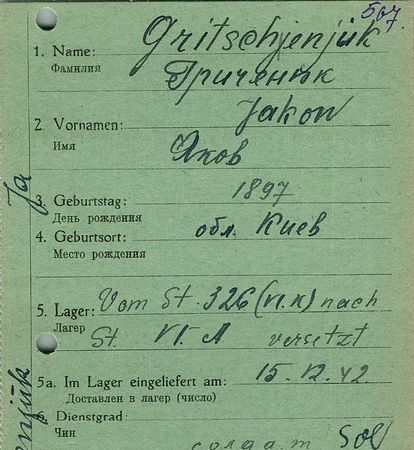 507.
1. Name: Gritschjenjuk
Фамилия Гриченюк
2. Vornamen: Jakow
Имя Яков
3. Geburtstag: 1897
День рождения
4. Geburtsort: обл. Киев
Место рождения
5. Lager: Vom St. 326 (VI.K) nach
Лагер St. VI. A versetzt
5a. Im Lager eingeliefert am: 15.12.42.
Доставлен в лагер (число)
6. Dienstgrad: Sol
Чин солдат